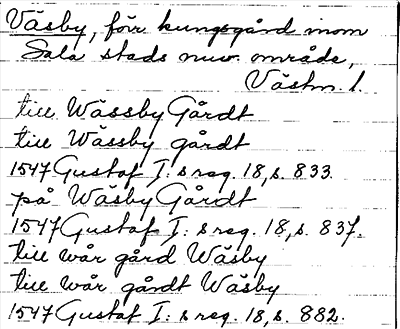 Väsby, förr kungsgård inom
Sala stads nuv. område,
Västm. l.
till Wässby Gårdt
till Wässby gårdt
1547 Gustaf I: s reg. 18, s. 833.
på Wäsby Gårdt
1547 Gustaf I: s reg. 18, s. 837.
till wår gård Wäsby
till wår gårdt Wäsby
1547 Gustaf I: s reg. 18, s. 882.